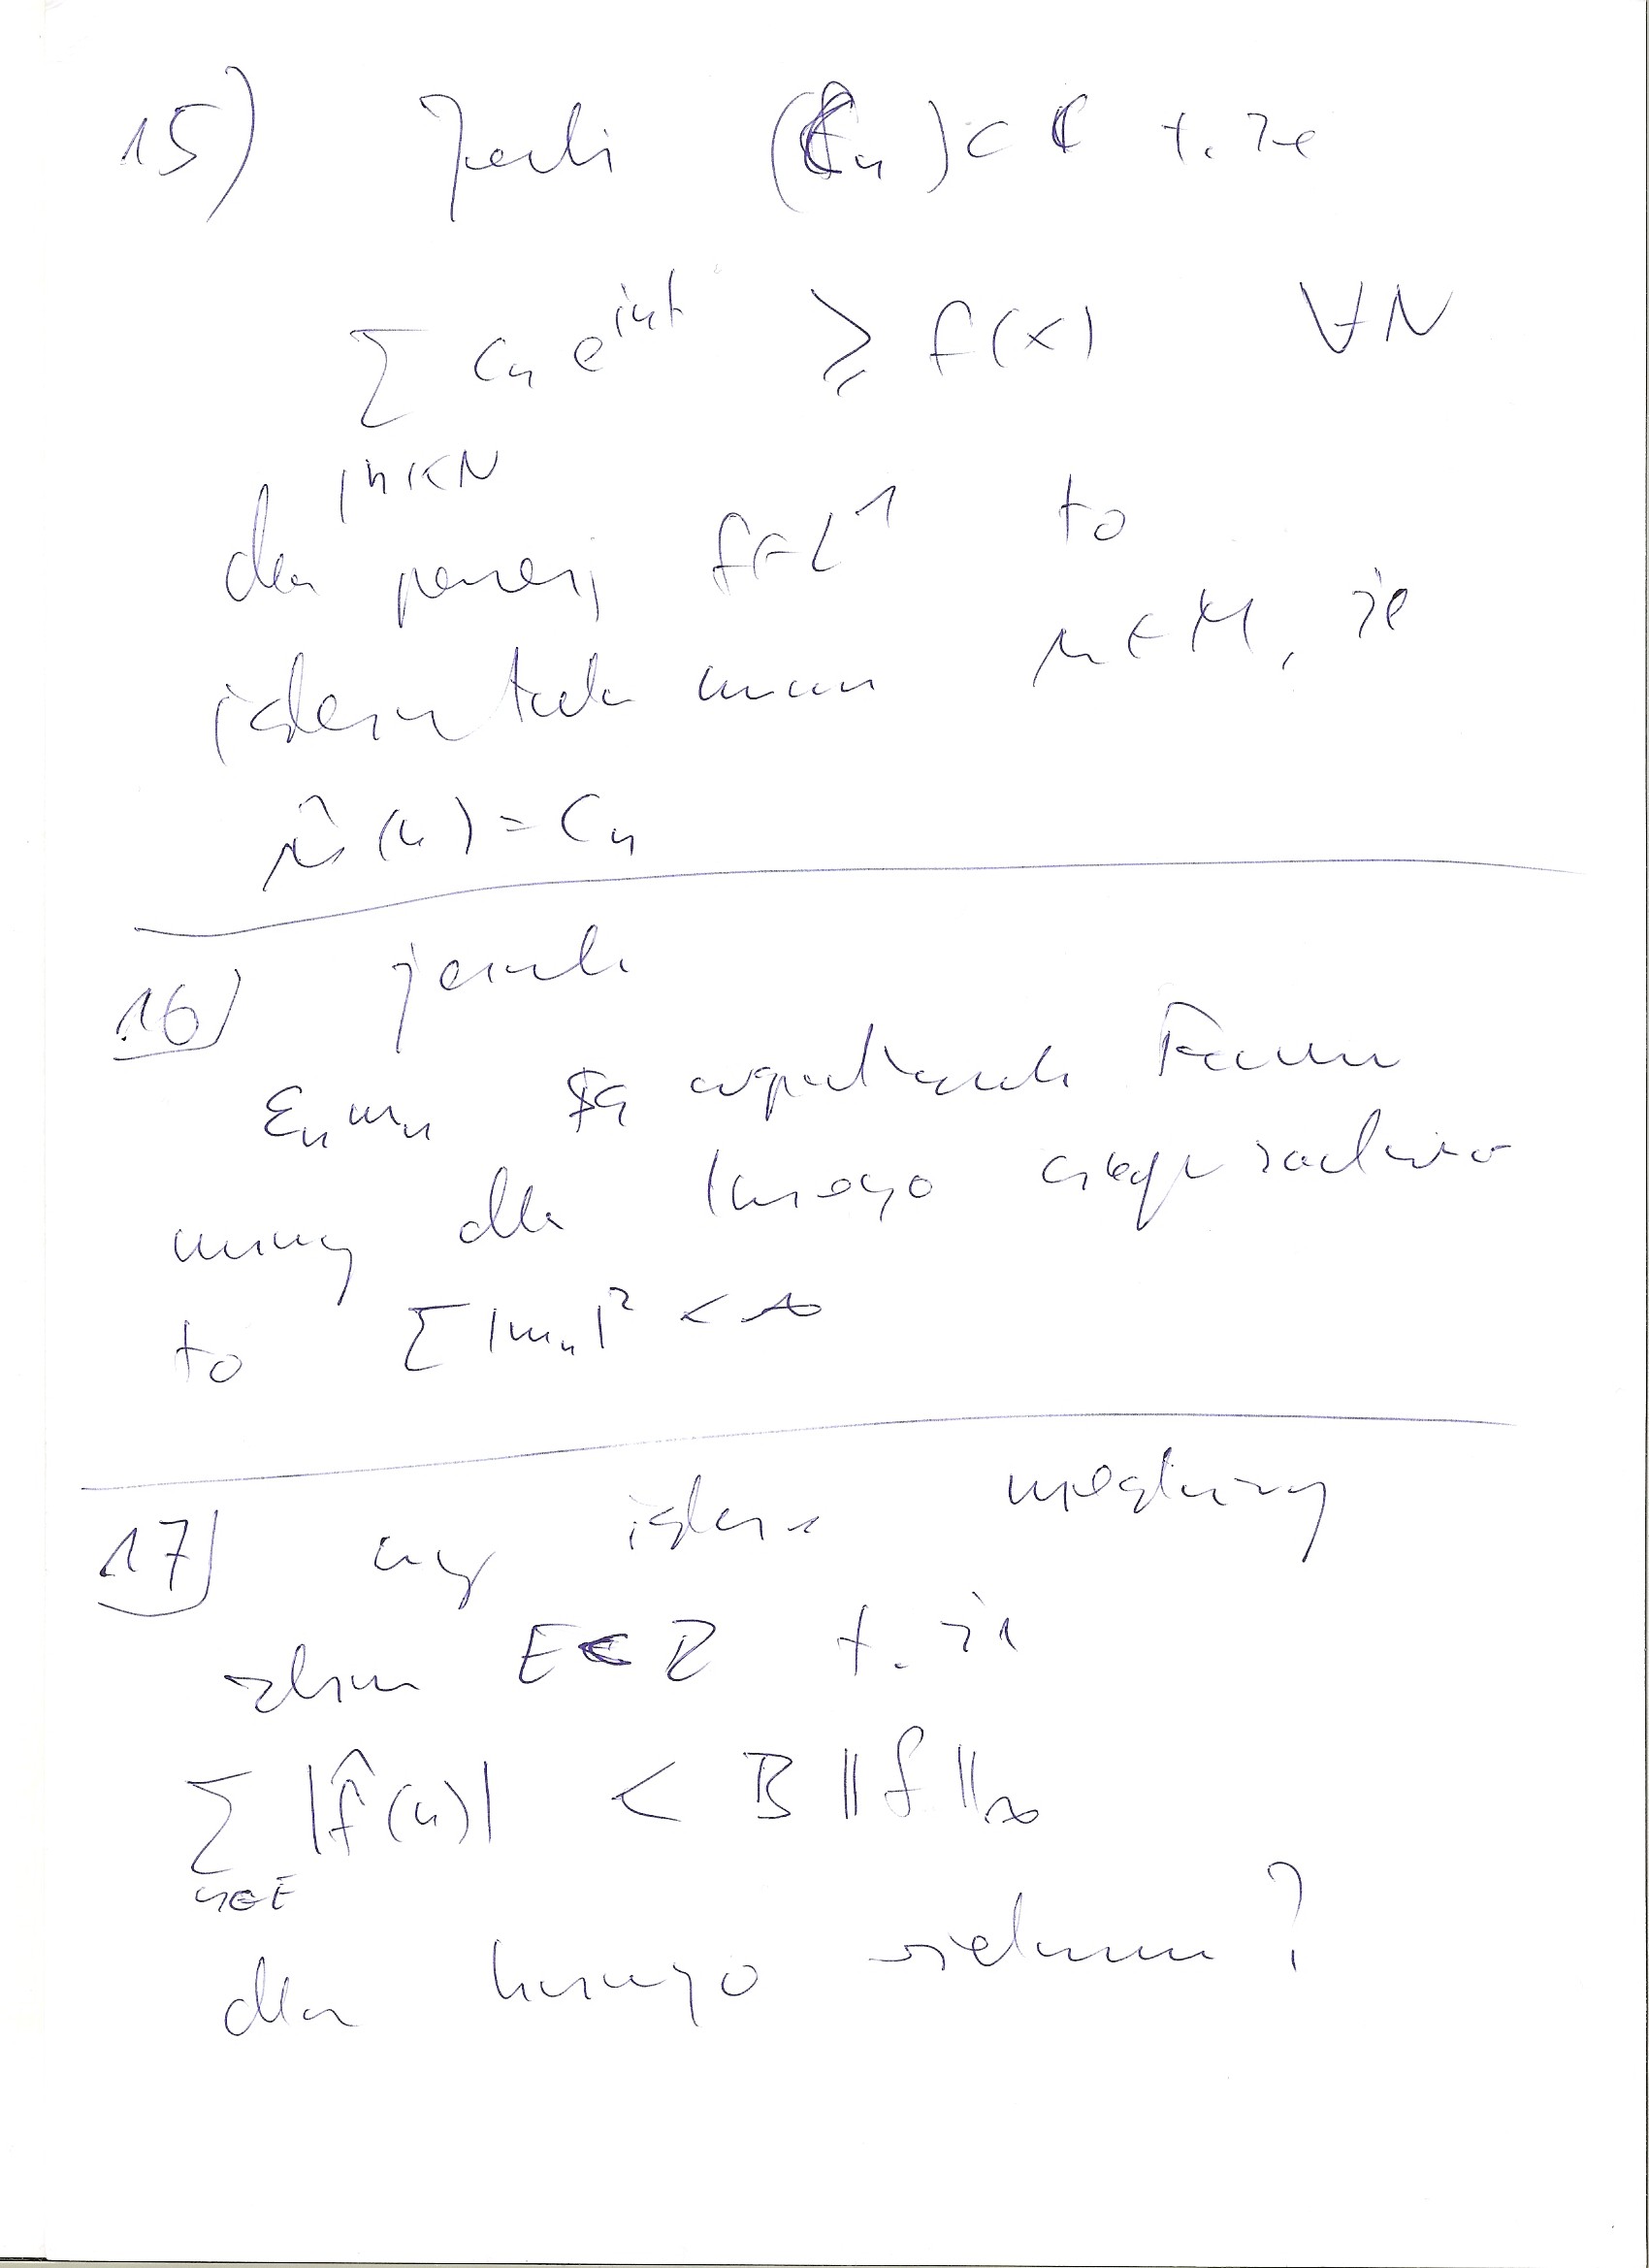 15) Jeśli (Cₙ) ⊂ ℂ t. że
∑ cₙ eⁱⁿᵗ ≥ f(x) ∀N
|n|<N
dla pewnej f∈L¹ to
istnieje taka miara μ∈M, że
μ̂(n) = Cₙ
16) jeżeli
εₙ mₙ są współczynnikami Fouriera
miary dla każdego ciągu znaków
to ∑ |mₙ|² < ∞
17) czy istnieje nieskończony
zbiór E⊂Z t. że
∑ |f̂(n)| < B ||f||∞
n∈E
dla każdego wielomianu?